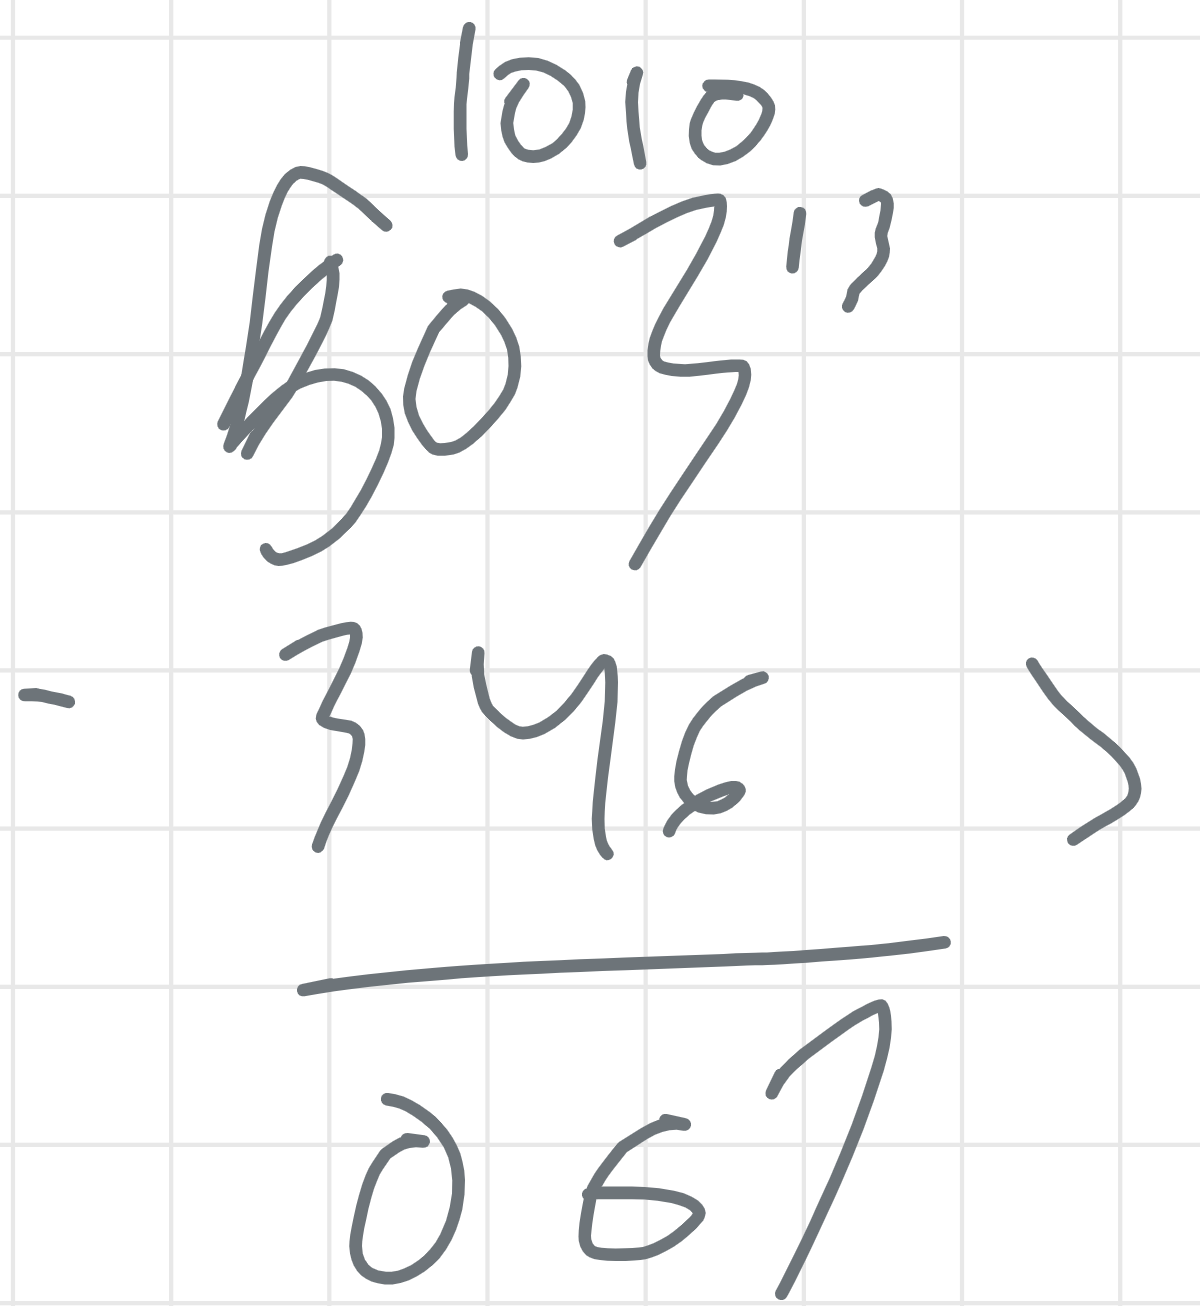 1010
503 13
- 346 >
067